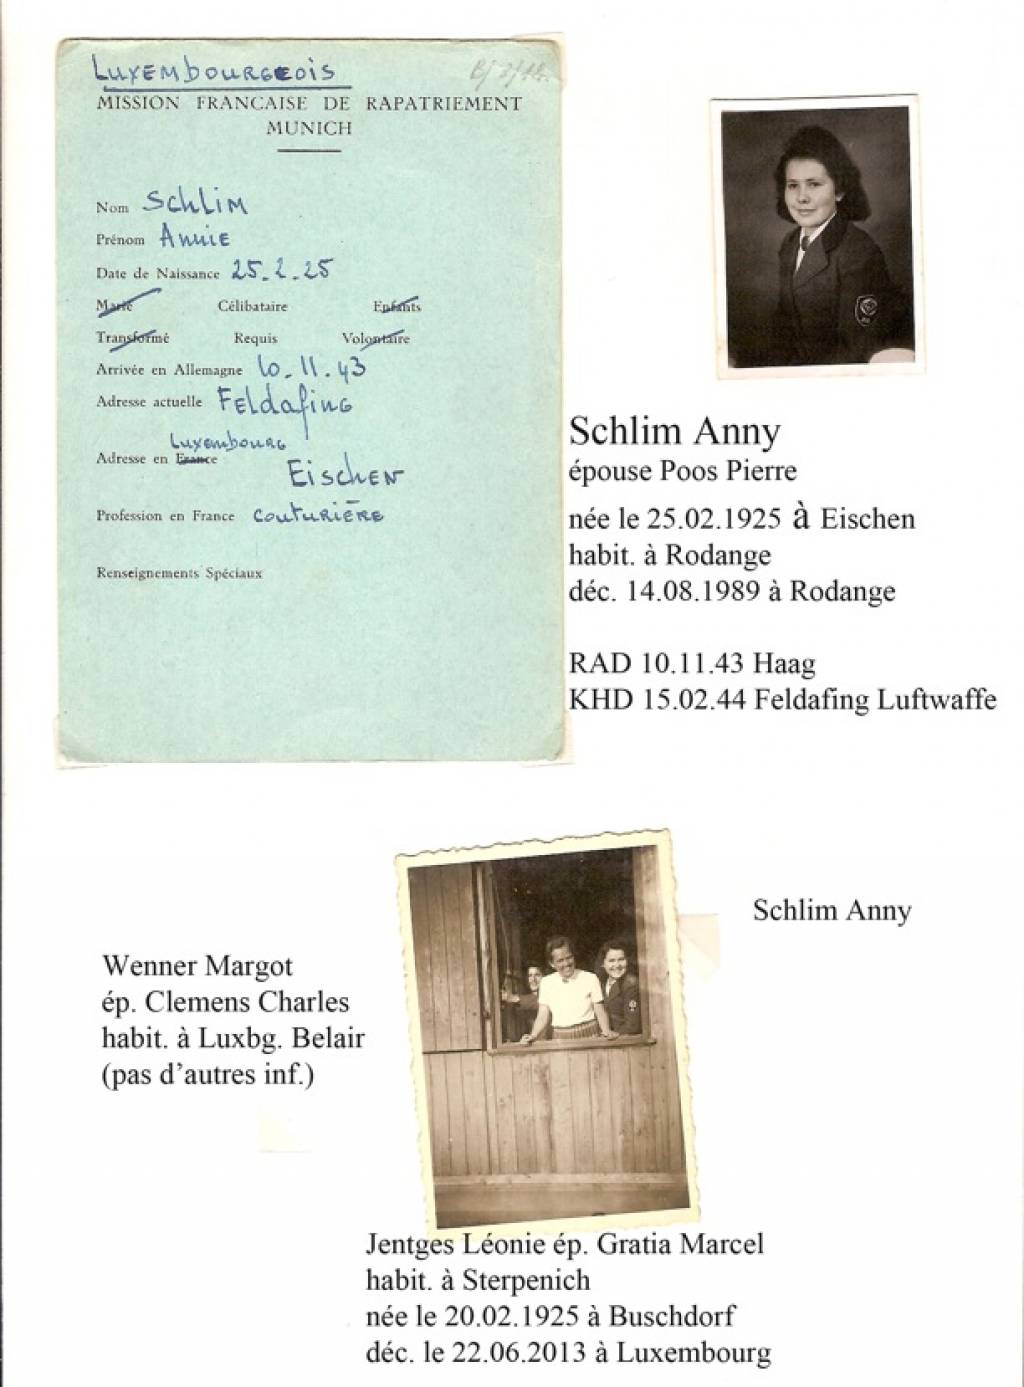 LUXEMBOURGEOIS
MISSION FRANCAISE DE RAPATRIEMENT
MUNICH
Nom Schlim
Prénom Annie
Date de Naissance 25.2.25
Marié Célibataire Enfants
Transformé Requis Volontaire
Arrivée en Allemagne 10.11.43
Adresse actuelle Feldafing
Luxembourg
Adresse en France
Eischen
Profession en France couturière
Renseignements Spéciaux
Schlim Anny
épouse Poos Pierre
née le 25.02.1925 à Eischen
habit. à Rodange
déc. 14.08.1989 à Rodange
RAD 10.11.43 Haag
KHD 15.02.44 Feldafing Luftwaffe
Schlim Anny
Wenner Margot
ép. Clemens Charles
habit. à Luxbg. Belair
(pas d'autres inf.)
Jentges Léonie ép. Gratia Marcel
habit. à Sterpenich
née le 20.02.1925 à Buschdorf
déc. le 22.06.2013 à Luxembourg